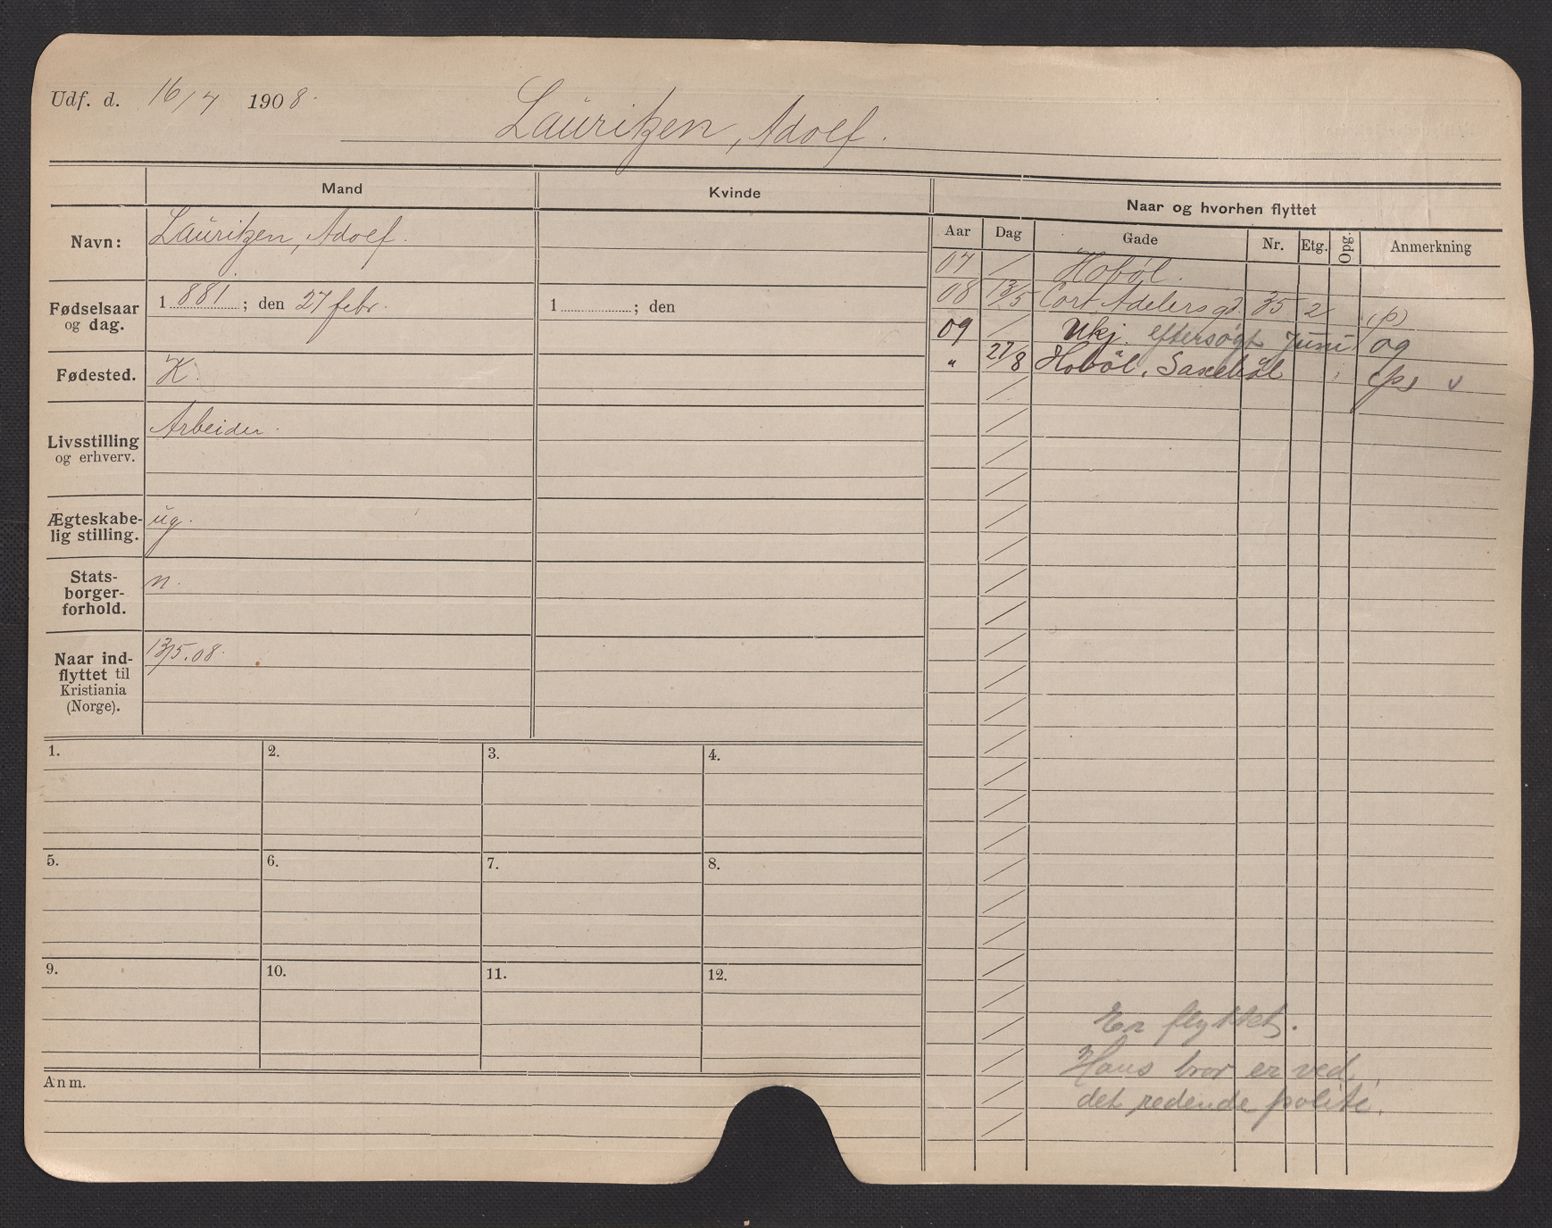 Udf. d. 16/7 1908.
Lauritzen, Adolf.
Mand
Kvinde
Naar og hvorhen flyttet
Navn:
Lauritzen, Adolf.
Aar
Dag
Gade
Nr.
Etg.
Opg.
Anmerkning
07 / Hobøl.
08 13/5 Cort Adelersgd 35 2 (p)
09 / Ukj. eftersøgt Juni og
" 27/8 Hobøl, Saxebøl (ps) v
Fødselsaar
og dag.
1881; den 27 febr.
1 ; den
Fødested.
K.
Livsstilling
og erhverv.
Arbeider.
Ægteskabe-
lig stilling.
ug.
Stats-
borger-
forhold.
n.
Naar ind-
flyttet til
Kristiania
(Norge).
13/5.08.
1.
2.
3.
4.
5.
6.
7.
8.
9.
10.
11.
12.
Er flyttet.
Hans bror er ved
det redende politi.
Anm.